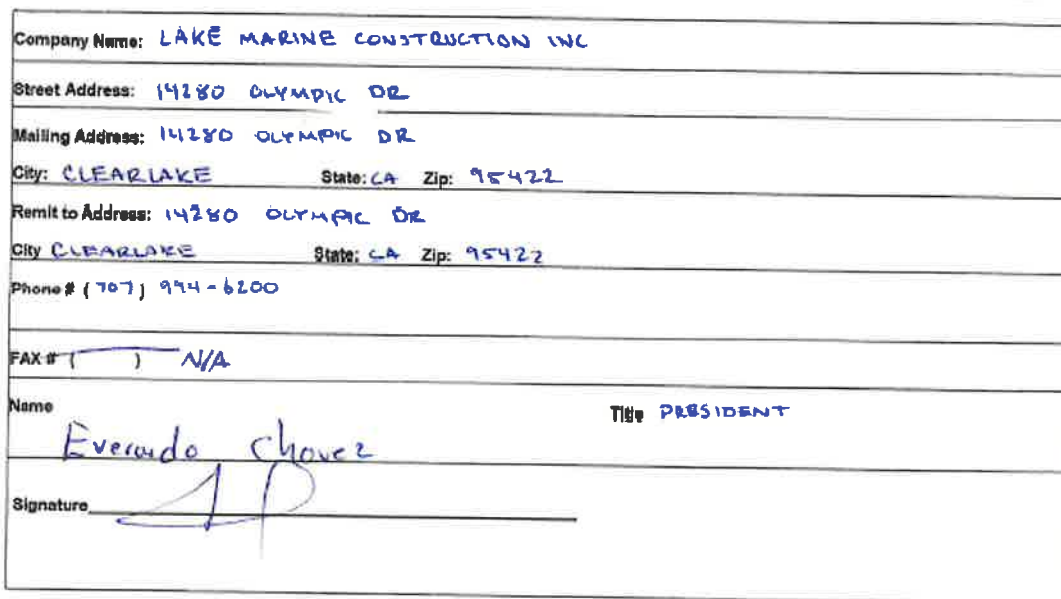 Company Name: LAKE MARINE CONSTRUCTION INC
Street Address: 14280 OLYMPIC DR
Mailing Address: 14280 OLYMPIC DR
City: CLEARLAKE State: CA Zip: 95422
Remit to Address: 14280 OLYMPIC DR
City CLEARLAKE State: CA Zip: 95422
Phone # (707) 994-6200
FAX # ( ) N/A
Name Title PRESIDENT
Everardo Chavez
Signature